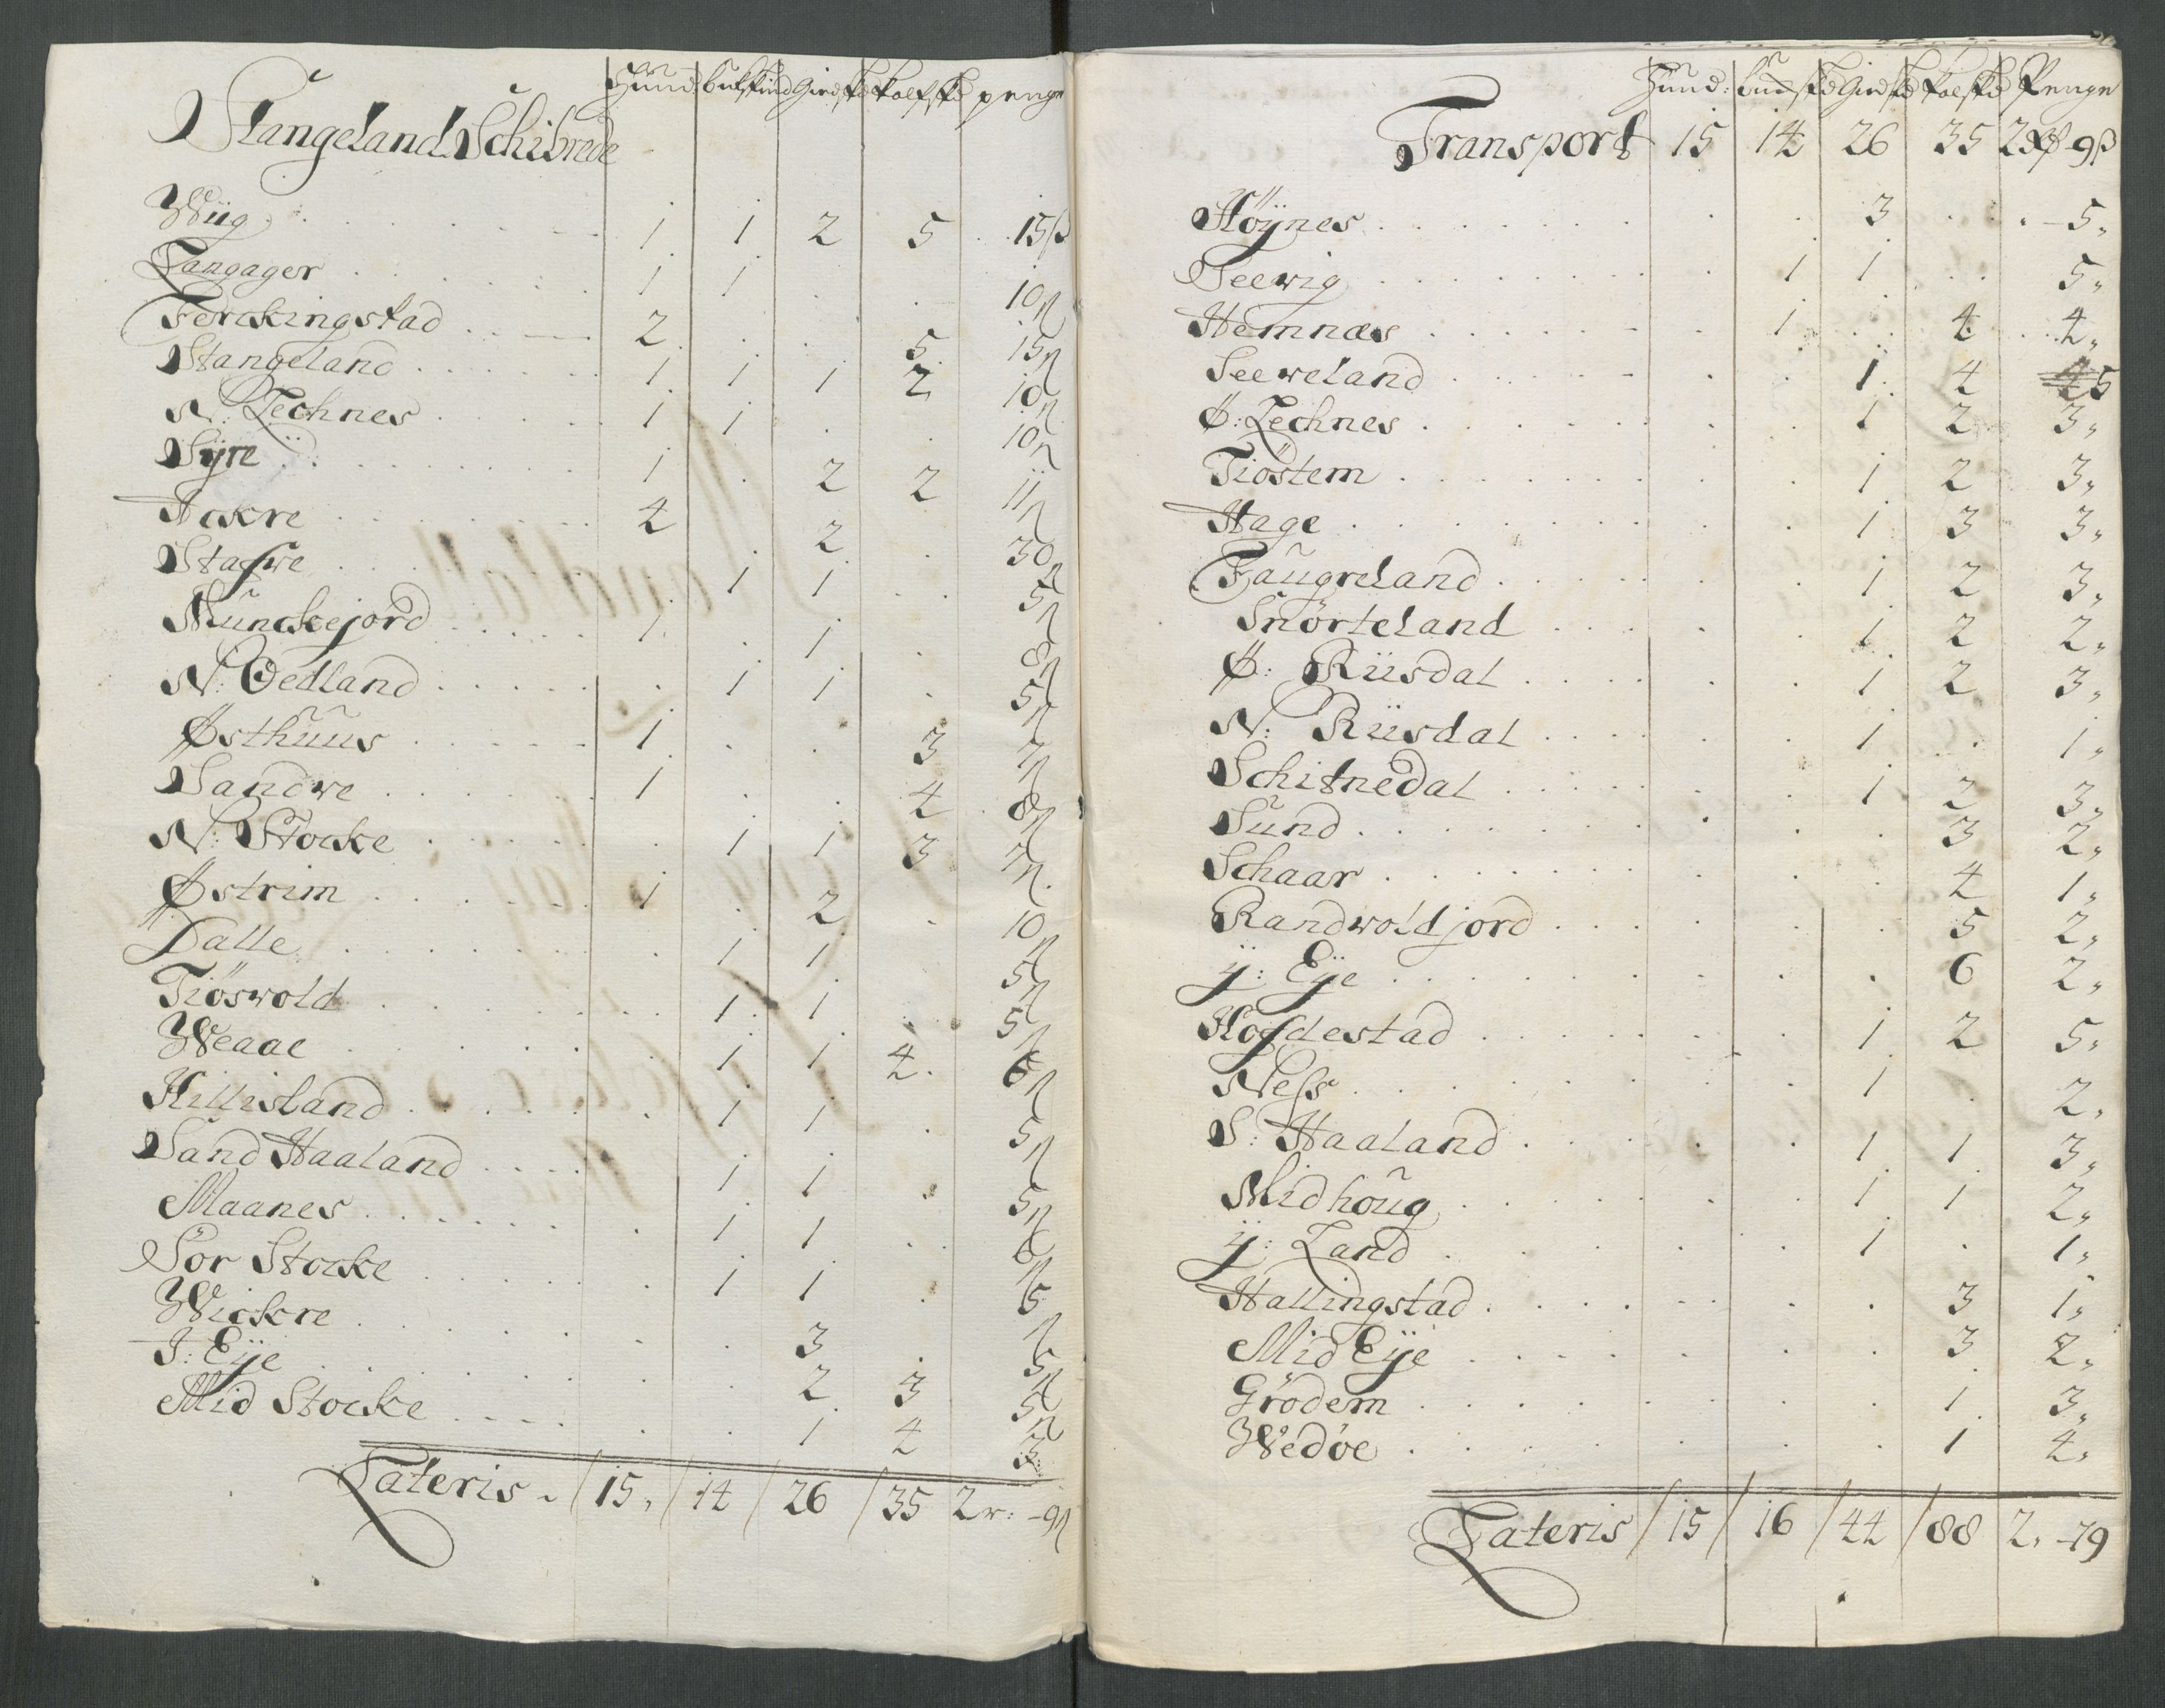 Hund: Bukskind Giedskd Kalfskd penge
Stangeland Schibrede
Wiig 1 1 2 5 15ß
Langager 1 1 10ß
Ferckingstad 2 5 15ß
Stangeland 1 1 1 2 10ß
N: Lechnes 1 1 10ß
Syre 1 2 2 11ß
Ackre 4 2 30ß
Stafwe 1 1 5ß
Munckejord 1 1 8ß
N: Oedland 1 1 5ß
Østhuus 1 3 7ß
Sandwe 1 4 8ß
N: Stocke 1 1 3 7ß
Østrim 1 2 10ß
Dalle 1 1 5ß
Tiöswold 1 1 5ß
Weaae 1 1 4 6ß
Hillisland 1 1 5ß
Sand Haaland 1 1 5ß
Maanes 1 1 6ß
Sör Stocke 1 1 5ß
Wickre 3 5ß
I: Eÿe 2 3 5ß
Mid Stocke 1 4 3
Lateris 15 14 26 35 2r: -9ß
Hund: Buckskd Giedskd Kalfskd Penge
Transport 15 14 26 35 2 9ß
Höÿnes 3 5
Seewig 1 1 5
Hemnæs 1 4 4
Seeweland 1 4 5
Ø: Lechnes 1 2 3
Tiöstem 1 2 3
Hage 1 3 3
Faugreland 1 2 3
Snörteland 1 2 2
Ø: Riisdal 1 2 3
N: Riisdal 1 1
Schitnedal 1 2 3
Sund 3 2
Schaar 4 1
Randwoldjord 5 2
ÿ: Eÿe 6 2
Hofdestad 1 2 5
Ness 1 2
S: Haaland 1 1 3
Midhoug 1 1 2
ÿ: Land 1 1
Hallingstad 3 1
Mid Eÿe 3 2
Grödem 1 3
Wedöe 1 4
Lateris 15 16 44 88 2 -79